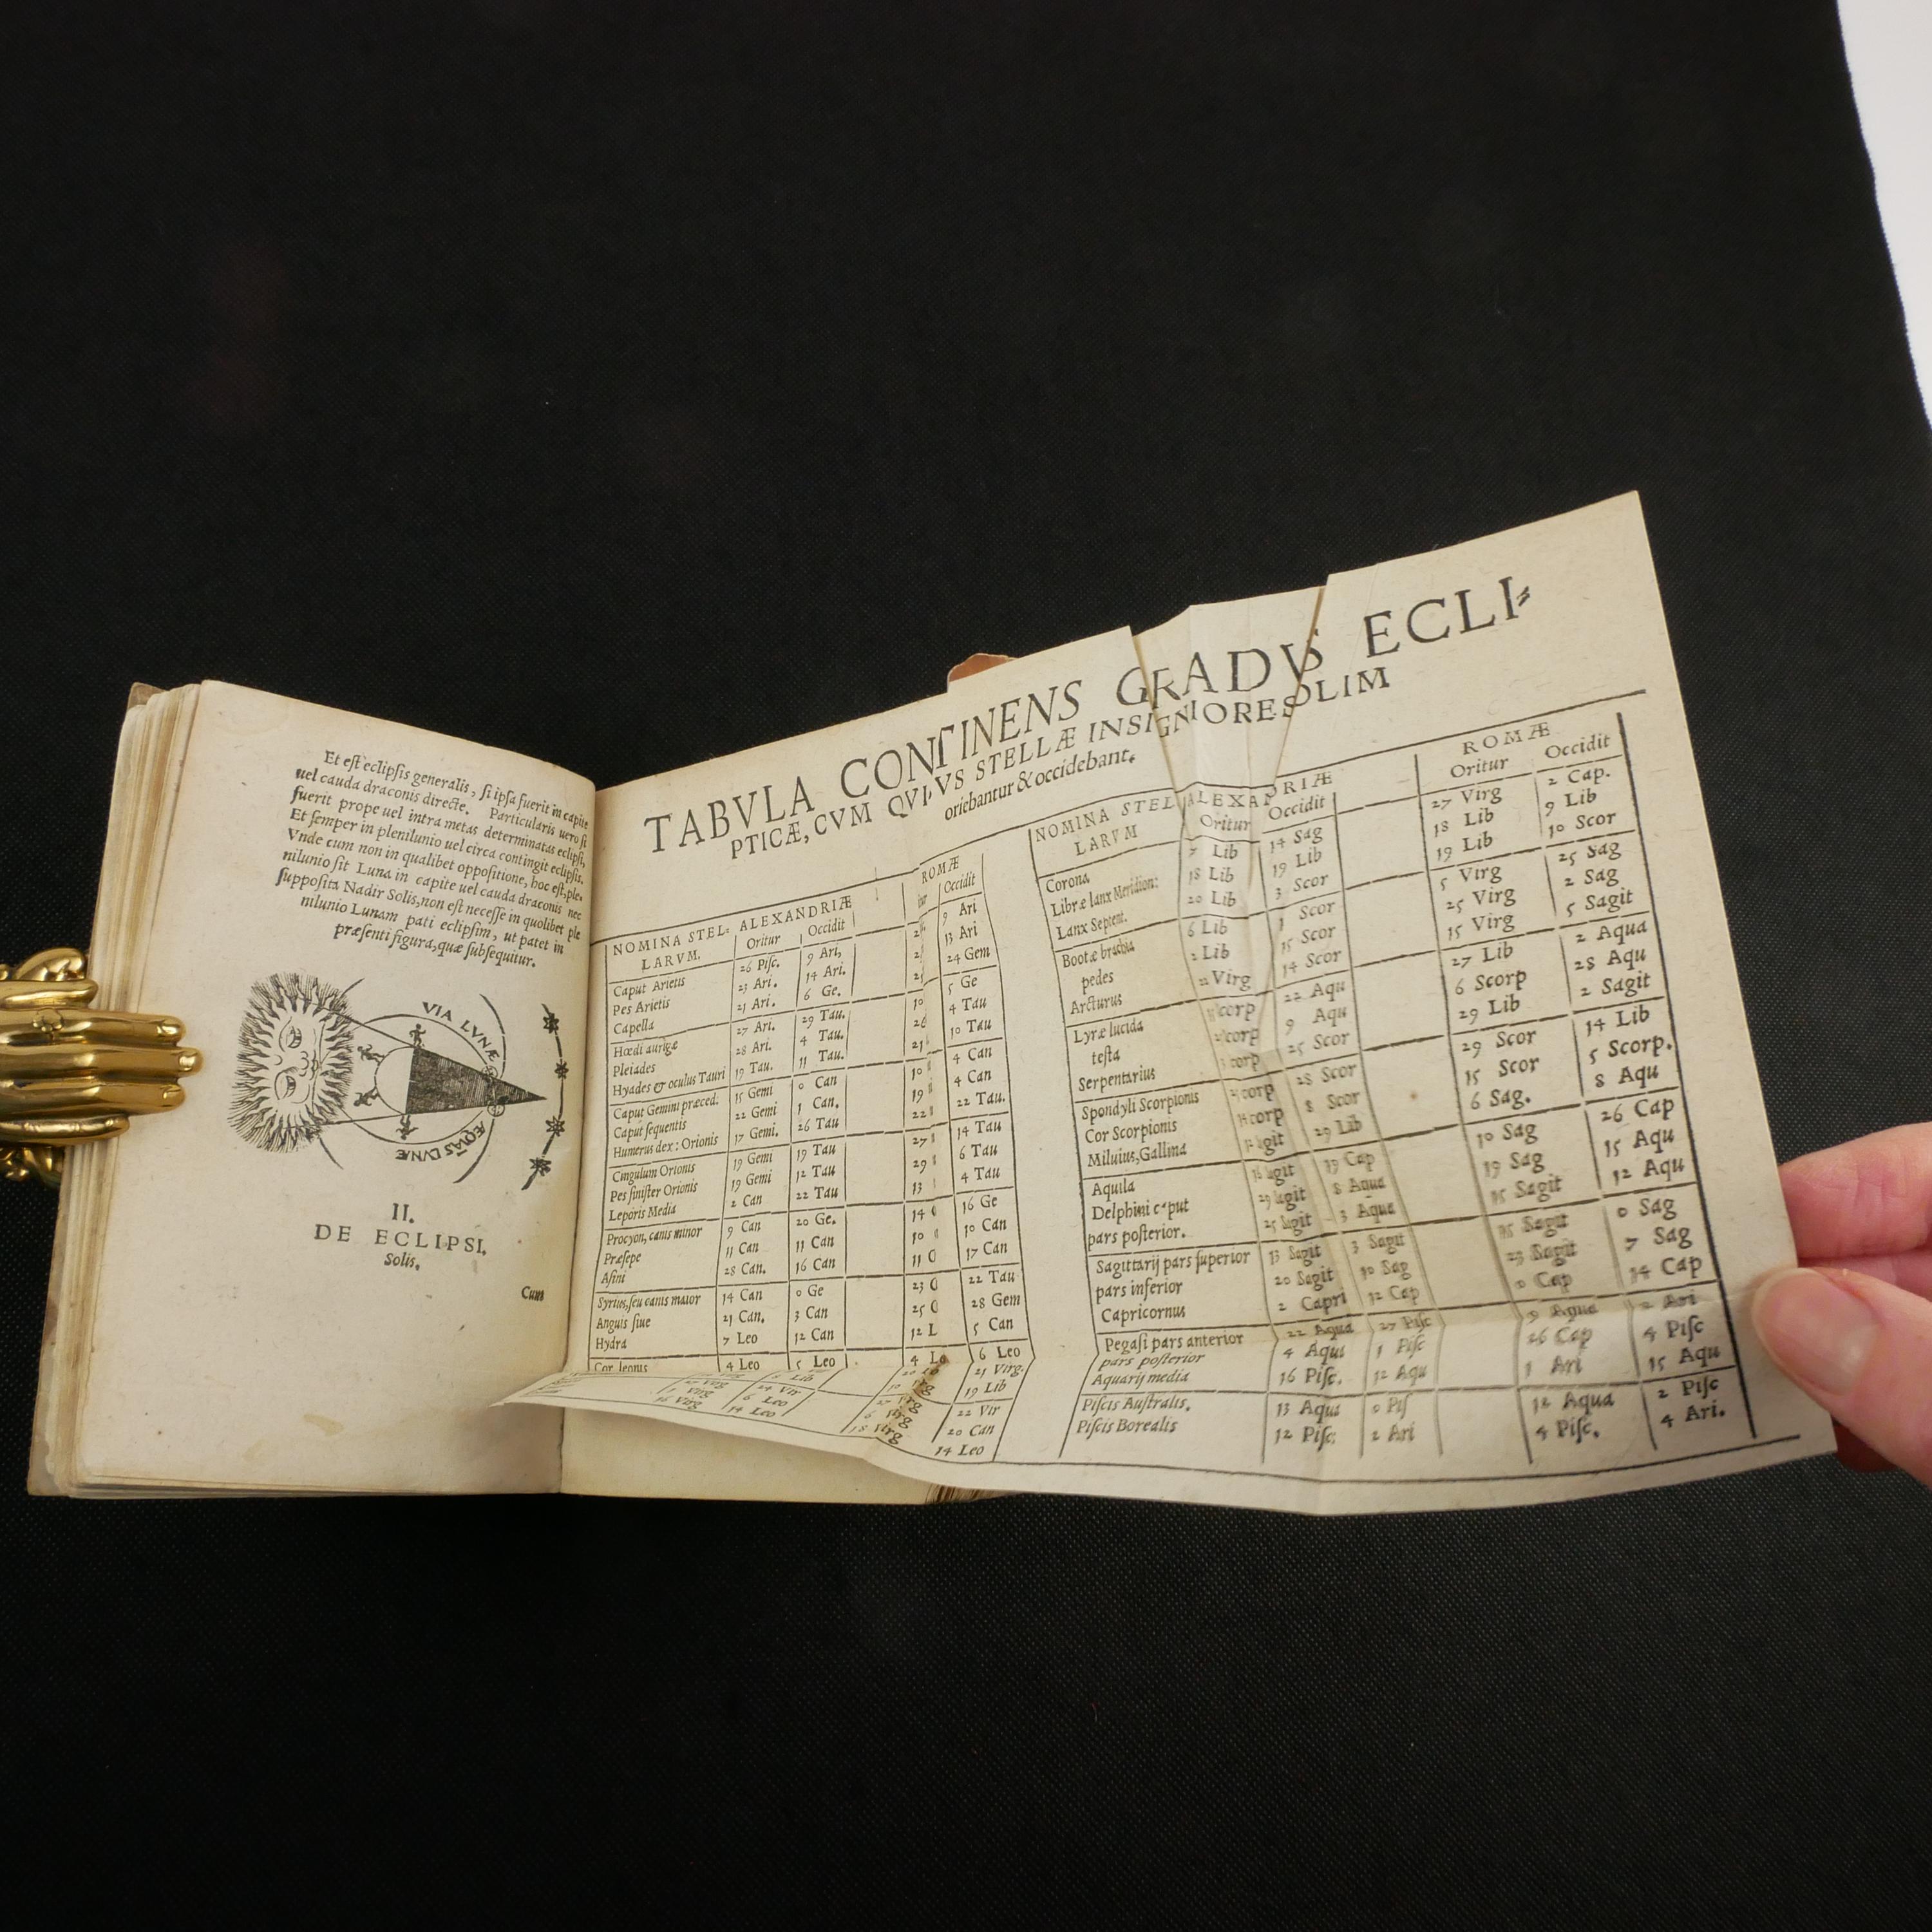 Et eſt eclipſis generalis, ſi ipſa fuerit in capite
uel cauda draconis directe. Particularis uero ſi
fuerit prope uel intra metas determinatas eclipſi.
Et ſemper in plenilunio uel circa contingit eclipſis.
Vnde cum non in qualibet oppoſitione, hoc eſt, ple-
nilunio ſit Luna in capite uel cauda draconis nec
ſuppoſita Nadir Solis, non eſt neceſſe in quolibet ple
nilunio Lunam pati eclipſim, ut patet in
præſenti figura, quæ ſubſequitur.
VIA LVNÆ
ÆQVÃS LVNÆ
II.
DE ECLIPSI,
Solis.
Cum
TABVLA CONTINENS GRADVS ECLI-
PTICÆ, CVM QVIBVS STELLÆ INSIGNIORES OLIM
oriebantur & occidebant.
NOMINA STEL- ALEXANDRIÆ ROMÆ
LARVM. Oritur Occidit Occidit
Caput Arietis 26 Piſc. 9 Ari, 9 Ari
Pes Arietis 23 Ari. 14 Ari. 13 Ari
Capella 21 Ari. 6 Ge. 24 Gem
Hœdi aurigæ 27 Ari. 29 Tau. 10 5 Ge
Pleiades 28 Ari. 4 Tau. 4 Tau
Hyades & oculus Tauri 19 Tau. 11 Tau. 10 Tau
Caput Gemini præced. 15 Gemi 0 Can 10 4 Can
Caput ſequentis 22 Gemi 1 Can. 19 4 Can
Humerus dex: Orionis 17 Gemi. 26 Tau 22 22 Tau.
Cingulum Orionis 19 Gemi 19 Tau 27 14 Tau
Pes ſiniſter Orionis 19 Gemi 12 Tau 29 6 Tau
Leporis Media 2 Can 22 Tau 13 4 Tau
Procyon, canis minor 9 Can 20 Ge. 14 16 Ge
Præſepe 11 Can 11 Can 10 10 Can
Aſini 28 Can. 16 Can 11 17 Can
Syrius, ſeu canis maior 14 Can 0 Ge 23 22 Tau
Anguis ſiue 21 Can. 3 Can 25 28 Gem
Hydra 7 Leo 12 Can 12 L 5 Can
Cor leonis 4 Leo 5 Leo 4 Le 6 Leo
21 Virg
19 Lib
22 Vir
20 Can
18 Virg 14 Leo
NOMINA STEL ALEXANDRIÆ ROMÆ
LARVM Oritur Occidit Oritur Occidit
Corona 7 Lib 14 Sag 27 Virg 2 Cap.
Libræ lanx Meridion: 18 Lib 19 Lib 18 Lib 9 Lib
Lanx Septent. 20 Lib 3 Scor 19 Lib 10 Scor
Bootæ brachia 6 Lib 1 Scor 5 Virg 25 Sag
pedes 2 Lib 15 Scor 25 Virg 2 Sag
Arcturus 22 Virg 14 Scor 15 Virg 5 Sagit
Lyræ lucida corp 22 Aqu 27 Lib 2 Aqua
teſta corp 9 Aqu 6 Scorp 28 Aqu
Serpentarius corp 25 Scor 29 Lib 2 Sagit
Spondyli Scorpionis corp 28 Scor 29 Scor 14 Lib
Cor Scorpionis corp 8 Scor 15 Scor 5 Scorp.
Miluius, Gallina git 29 Lib 6 Sag. 8 Aqu
Aquila agit 19 Cap 10 Sag 26 Cap
Delphini caput agit 8 Aqua 19 Sag 15 Aqu
pars poſterior. 25 Sagit 3 Aqua 15 Sagit 12 Aqu
Sagittarij pars ſuperior 13 Sagit 3 Sagit 15 Sagit 0 Sag
pars inferior 20 Sagit 10 Sag 23 Sagit 7 Sag
Capricornus 2 Capri 12 Cap 0 Cap 14 Cap
Pegaſi pars anterior 22 Aqua 27 Piſc 9 Aqua 2 Ari
pars poſterior 4 Aqua 1 Piſc 26 Cap 4 Piſc
Aquarij media 16 Piſc. 12 Aqu 1 Ari 15 Aqu
Piſcis Auſtralis. 13 Aqua 0 Piſ 12 Aqua 2 Piſc
Piſcis Borealis 12 Piſc: 2 Ari 4 Piſc. 4 Ari.